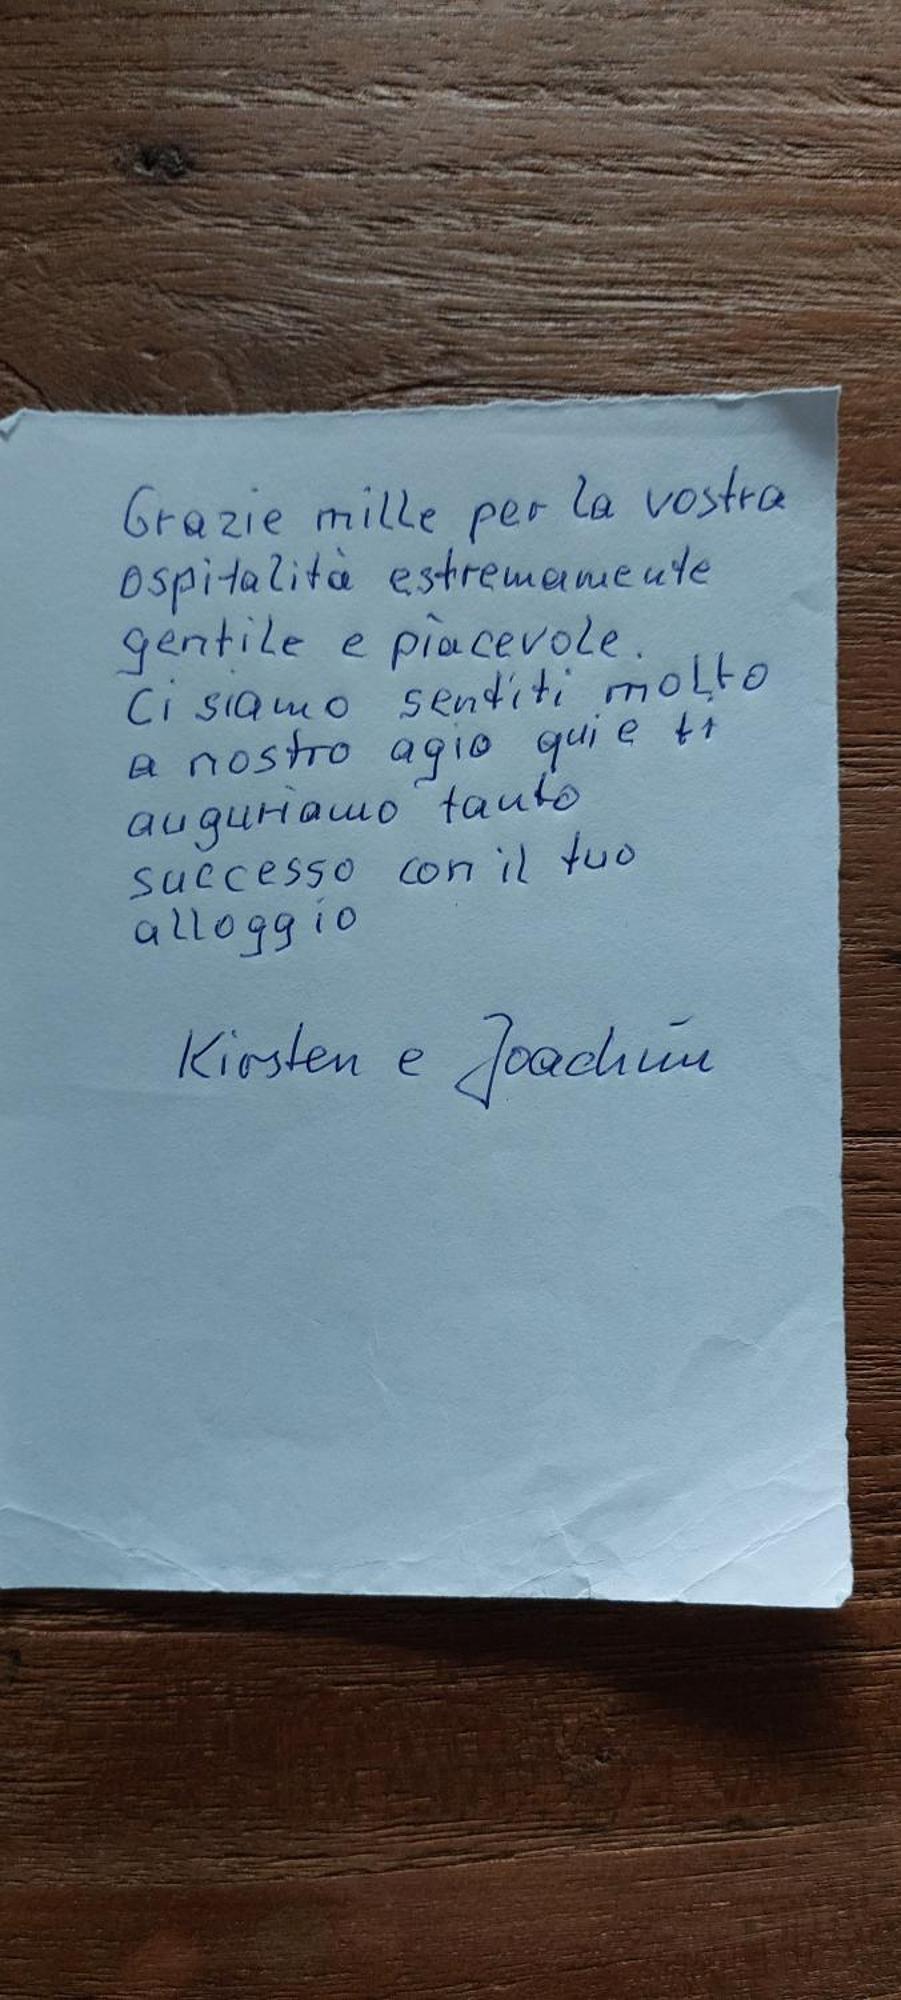 Grazie mille per la vostra
ospitalità estremamente
gentile e piacevole.
Ci siamo sentiti molto
a nostro agio qui e ti
auguriamo tanto
successo con il tuo
alloggio
Kirsten e Joachim